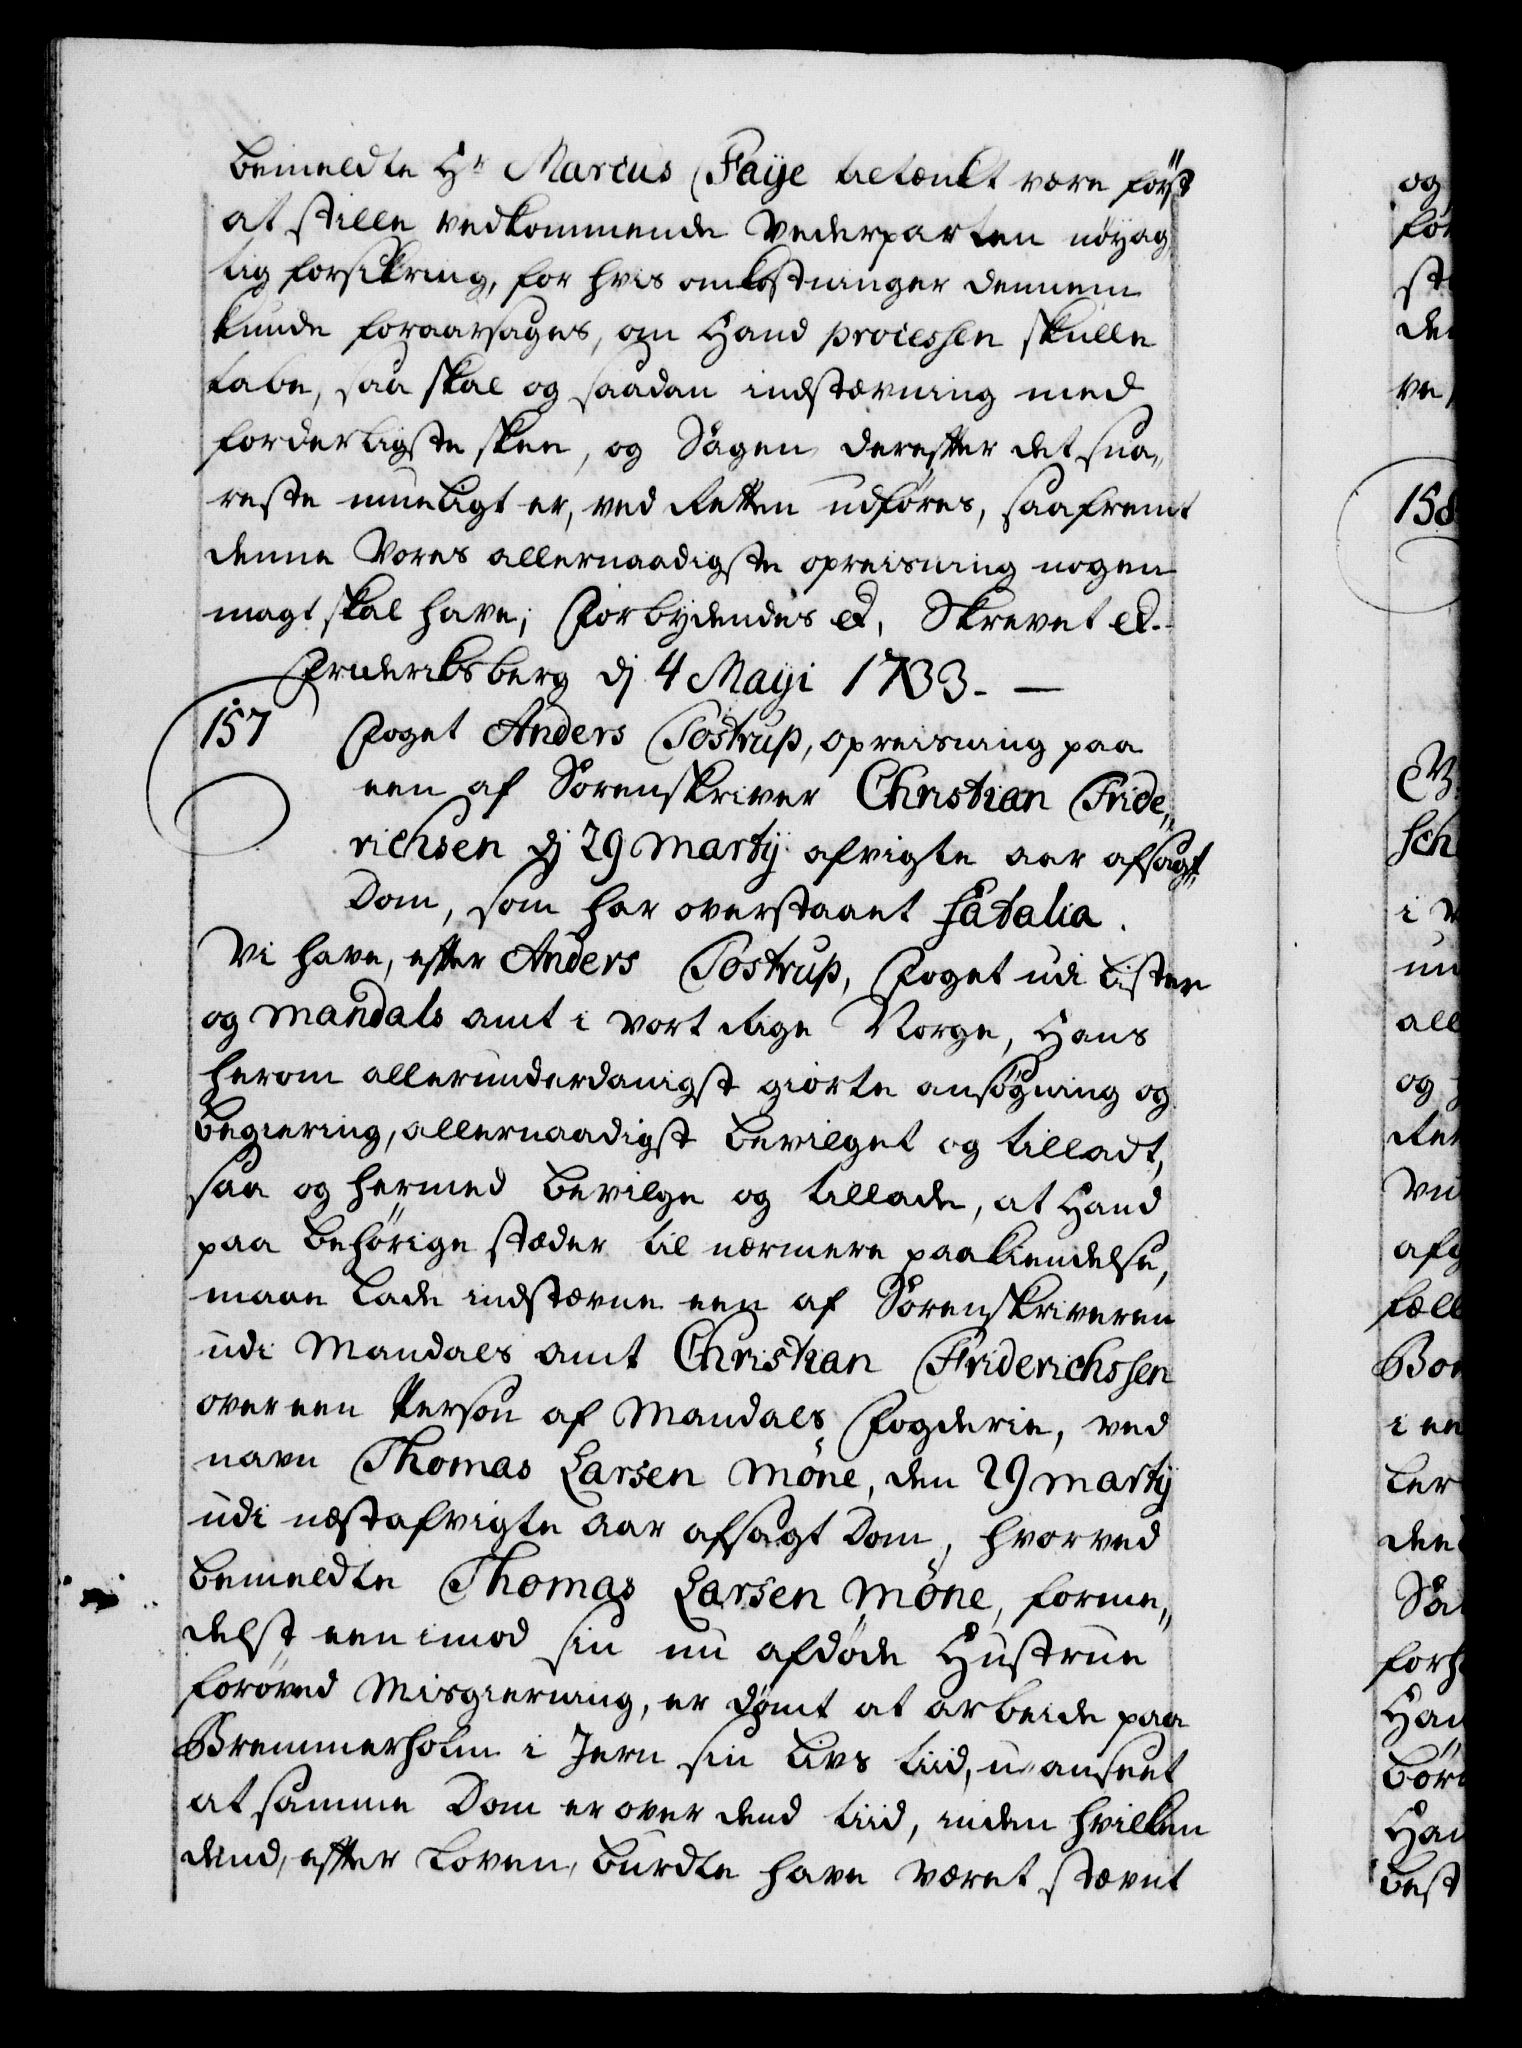 bemeldte Hr Marcus Faÿe betænkt være først
at stille vedkommende Vederparten nøyag
tig forsikring, for hvis omkostninger dennem
kunde foraarsages, om Hand processen skulle
tabe, saa skal og saadan indstævning med
forderligste skee, og Sagen derefter det sna„
reste mueligt er, ved Retten udføres, saafremt
denne Vores allernaadigste opreisning nogen
magt skal have; Forbydendes etc. Skrevet etc.
Friderichsberg dj 4 Maÿi 1733.
157 Foget Anders Tostrup, opreisning paa
een af Sorenskriver Christian Fride„
richsen dj 29 Martÿ afvigte aar afsagt
Dom, som har overstaaet fatalia.
Vi have, efter Anders Tostrup, Foget udi Lister
og Mandals amt i vort Rige Norge, Hans
herom allerunderdanigst giorte ansøgning og
begiering, allernaadigst bevilget og tilladt,
saa og hermed bevilge og tillade, at Hand
paa behørige stæder til nærmere paakiendelse,
maae lade indstævne een af Sorenskriveren
udi Mandals amt Christian Friderichssen
over een Person af Mandals Fogderie, ved
navn Thomas Larsen Møne, den 29 Martÿ
udi næstafvigte aar afsagt Dom, hvorved
bemeldte Thomas Larsen Møne, forme„
delst een imod sin nu afdøde Hustrue
forøved Misgierning, er dømt at arbeide paa
Bremmerholm i Jern sin Livs tiid, u-anseet
at samme Dom er over dend tiid, inden hvilken
dend, efter Loven, burdte have været stævnt
og
158